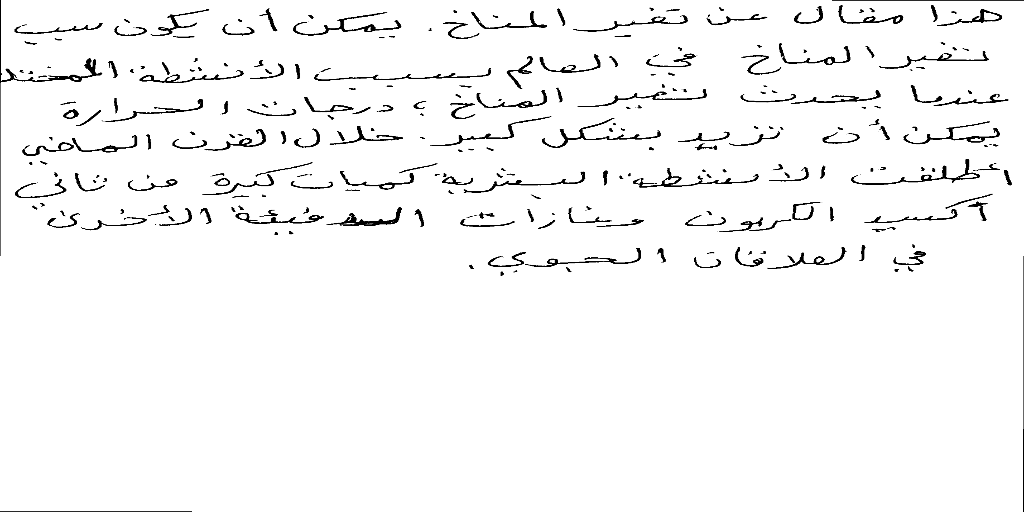 هذا مقال عن تغير المناخ. يمكن أن يكون سبب
تغير المناخ في العالم بسبب الأنشطة
عندما يحدث تغير المناخ، درجات الحرارة
يمكن أن تزيد بشكل كبير. خلال القرن الماضي
أطلقت الأنشطة البشرية كميات كبيرة من ثاني
أكسيد الكربون وغازات الدفيئة الأخرى
في الغلاف الجوي.